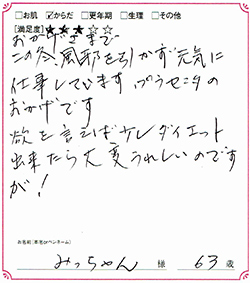 □お肌 ☑からだ □更年期 □生理 □その他
[満足度]★★★☆☆
おかげさまで
この冬風邪を引かず元気に
仕事しています プラセンタの
おかげです
欲を言えば少しダイエット
出来たら大変うれしいのです
が!
お名前(本名orペンネーム)
みっちゃん 様 63歳